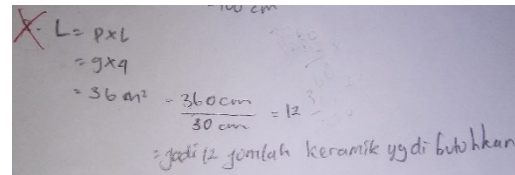 100 cm
8. L = p x L
= 9 x 4
= 36 m² = 360 cm / 30 cm = 12
= jadi 12 jomlah keramik yg di butuhkan